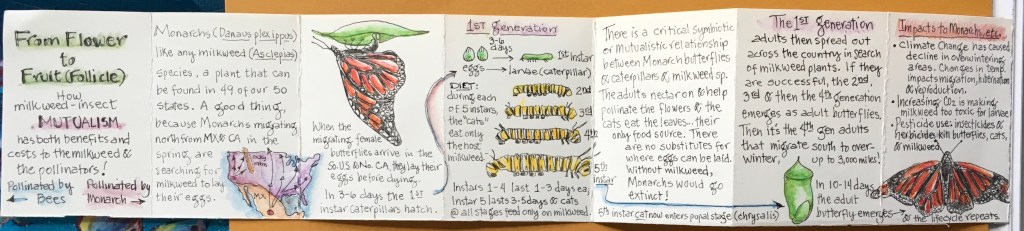 From Flower
to
Fruit (Follicle)
How
milkweed-insect
MUTUALISM
has both benefits and
costs to the milkweed &
the pollinators!
Pollinated by
Bees
Pollinated by
Monarch
Monarchs (Danaus plexippus)
like any milkweed (Asclepias)
species, a plant that can
be found in 49 of our 50
states. A good thing,
because Monarchs migrating
north from MX & CA in the
spring, are
searching for
milkweed to lay
their eggs.
MX
When the
migrating female
butterflies arrive in the
So. US & No. CA, they lay their
eggs before dying.
In 3-6 days the 1st
instar caterpillars hatch.
1ST generation
3-6
days
1st instar
eggs
larvae (caterpillar)
DIET:
during each
of 5 instars,
the "cats"
eat only
the host
milkweed.
2nd
3rd
4th
Instars 1-4 last 1-3 days ea,
Instar 5 lasts 3-5 days & cats
@ all stages feed only on milkweed.
There is a critical symbiotic
or mutualistic relationship
between Monarch butterflies
& caterpillars & milkweed sp.
The adults nectar on & help
pollinate the flowers & the
cats eat the leaves... their
only food source. There
are no substitutes for
where eggs can be laid.
Without milkweed,
Monarchs would go
extinct!
5th
instar
5th instar cat now enters pupal stage (chrysalis)
The 1st generation
adults then spread out
across the country in search
of milkweed plants. If they
are successful, the 2nd
3rd & then the 4th generation
emerges as adult butterflies.
Then it's the 4th gen adults
that migrate south to over-
winter,
up to 3,000 miles!
In 10-14 days
the adult
butterfly emerges
Impacts to Monarchs, etc.
• Climate Change has caused
decline in overwintering
areas. Changes in temp.
impacts migration, hibernation
& reproduction.
• Increasing CO2 is making
milkweed too toxic for larvae
• Pesticide use: insecticides &
herbicides kill butterflies, cats,
& milkweed.
& the lifecycle repeats.